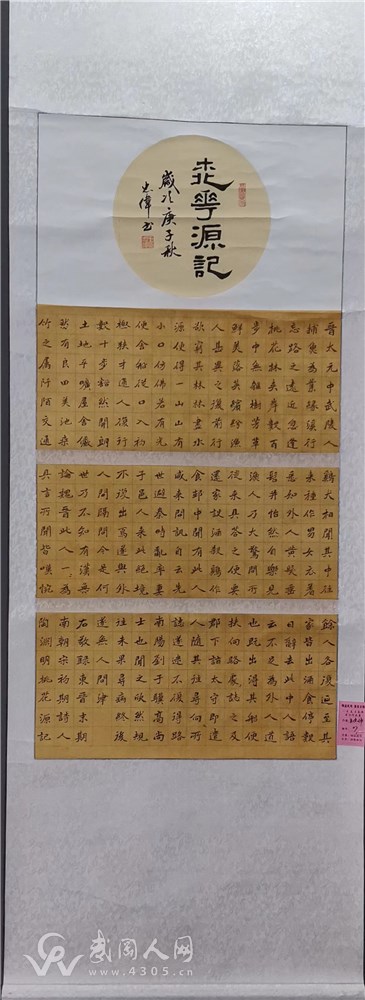 桃華源記
歲次庚子秋
忠偉书
晉太元中武陵人
捕魚為業緣溪行
忘路之遠近忽逢
桃花林夾岸數百
步中無雜樹芳草
鮮美落英繽紛漁
人甚異之復前行
欲窮其林林盡水
源便得一山山有
小口仿佛若有光
便舍船從口入初
極狹才通人復行
數十步豁然開朗
土地平曠屋舍儼
然有良田美池桑
竹之屬阡陌交通
雞犬相聞其中往
來種作男女衣著
悉如外人黃髮垂
髫并怡然自樂見
漁人乃大驚問所
從來具答之便要
還家設酒殺雞作
食邨中聞有此人
咸來問訊自云先
世避秦時亂率妻
子邑人來此絕境
不復出焉遂與外
人間隔問今是何
世乃不知有漢無
論魏晉此人一一為
具言所聞皆嘆惋
餘人各復延至其
家皆出酒食停數
日辭去此中人語
云不足為外人道
也既出得其船便
扶向路處處誌之及
郡下詣太守即遣
人隨其往尋向所
誌遂迷不復得路
南陽劉子驥高尚
士也聞之欣然規
往未果尋病終後
遂無人問津
右敬錄東晉末期
南朝宋初期詩人
陶淵明桃花源記
武冈人网
www.4305.cn